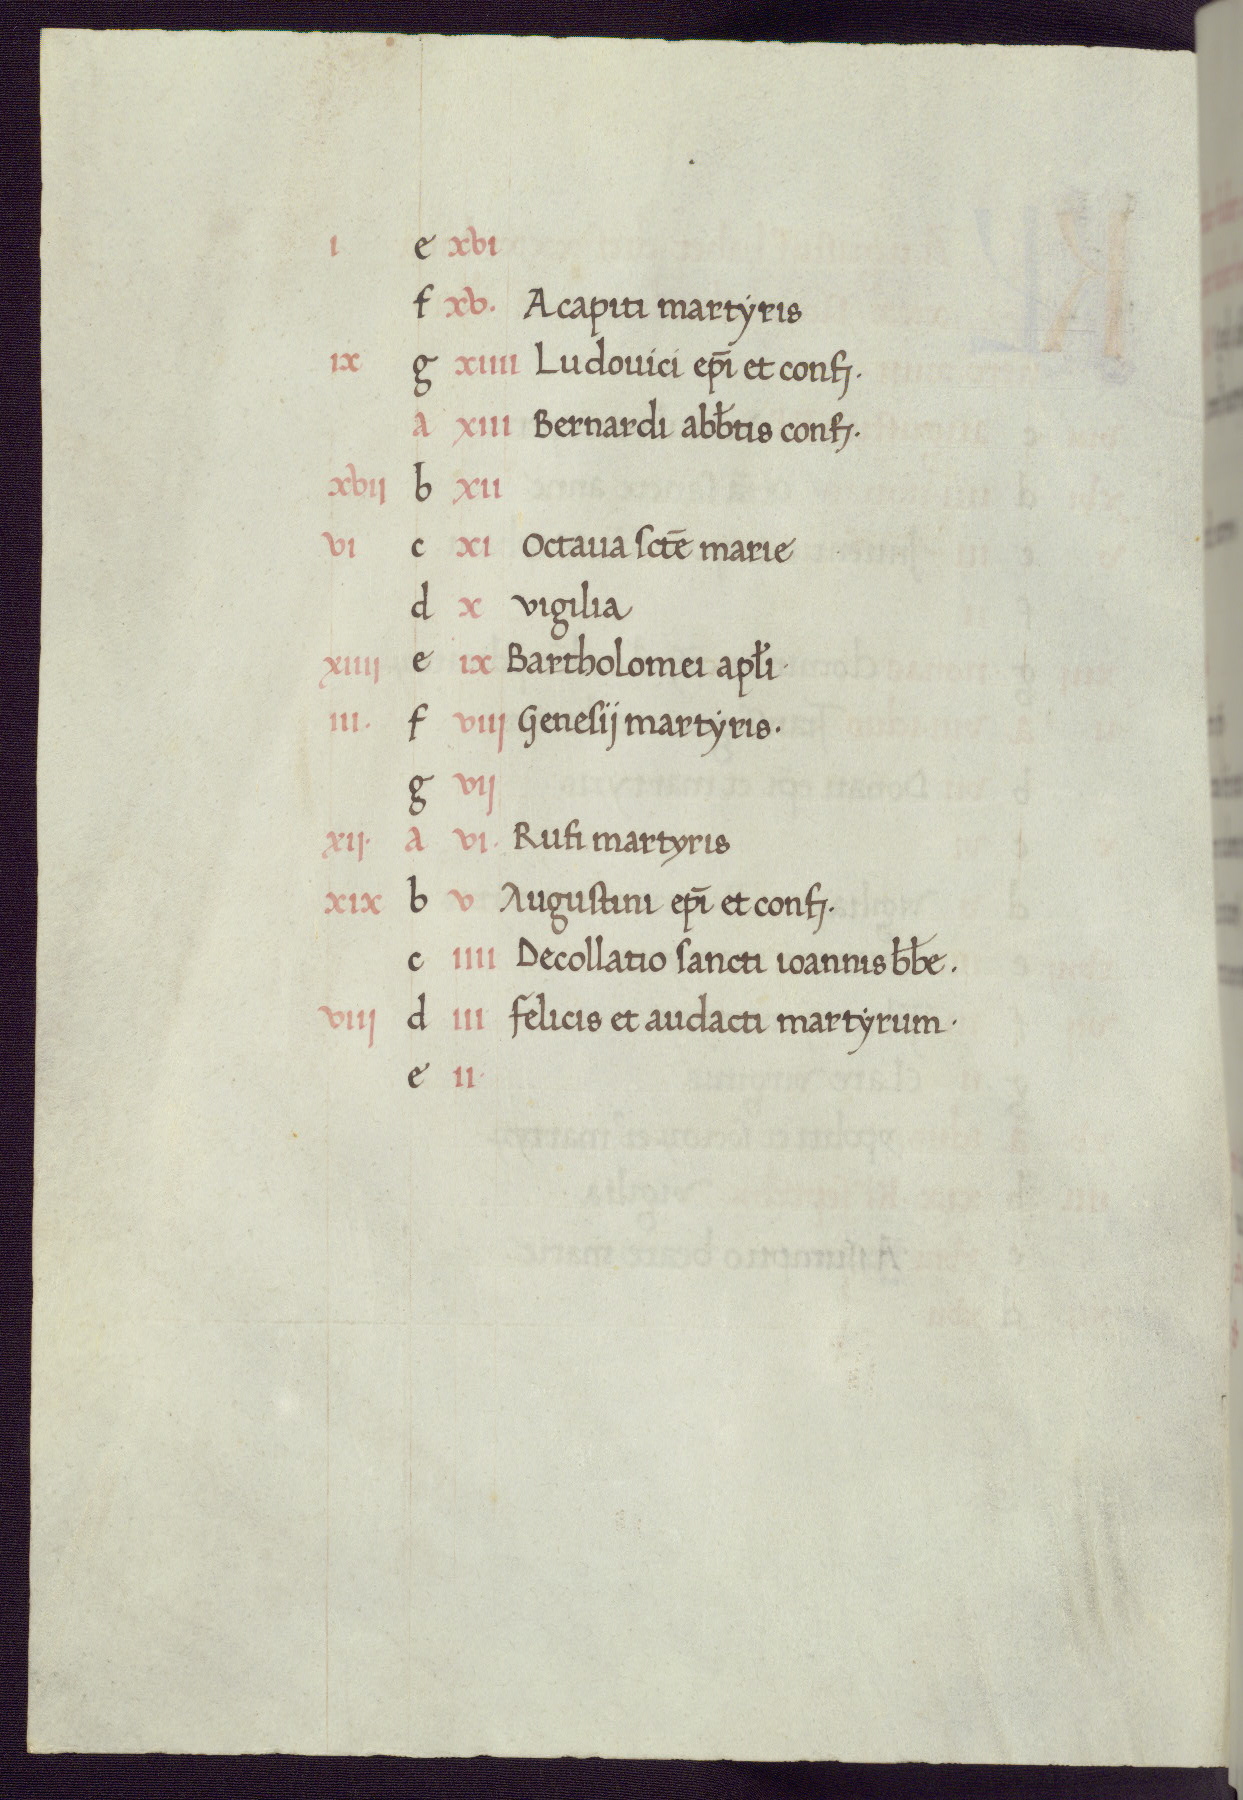 i e xvi
f xv. Acapiti martyris
ix g xiiii Ludouici ep̄i et conf.
A xiii Bernardi abb̄tis conf.
xvij b xii
vi c xi Octaua sctē marie
d x vigilia
xiiij e ix Bartholomei apl̄i.
iii. f viij Genesij martyris.
g vij
xij. A vi. Rufi martyris
xix b v Augustini ep̄i et conf.
c iiii Decollatio sancti ioannis bb̄e.
viij d iii felicis et audacti martyrum.
e ii.